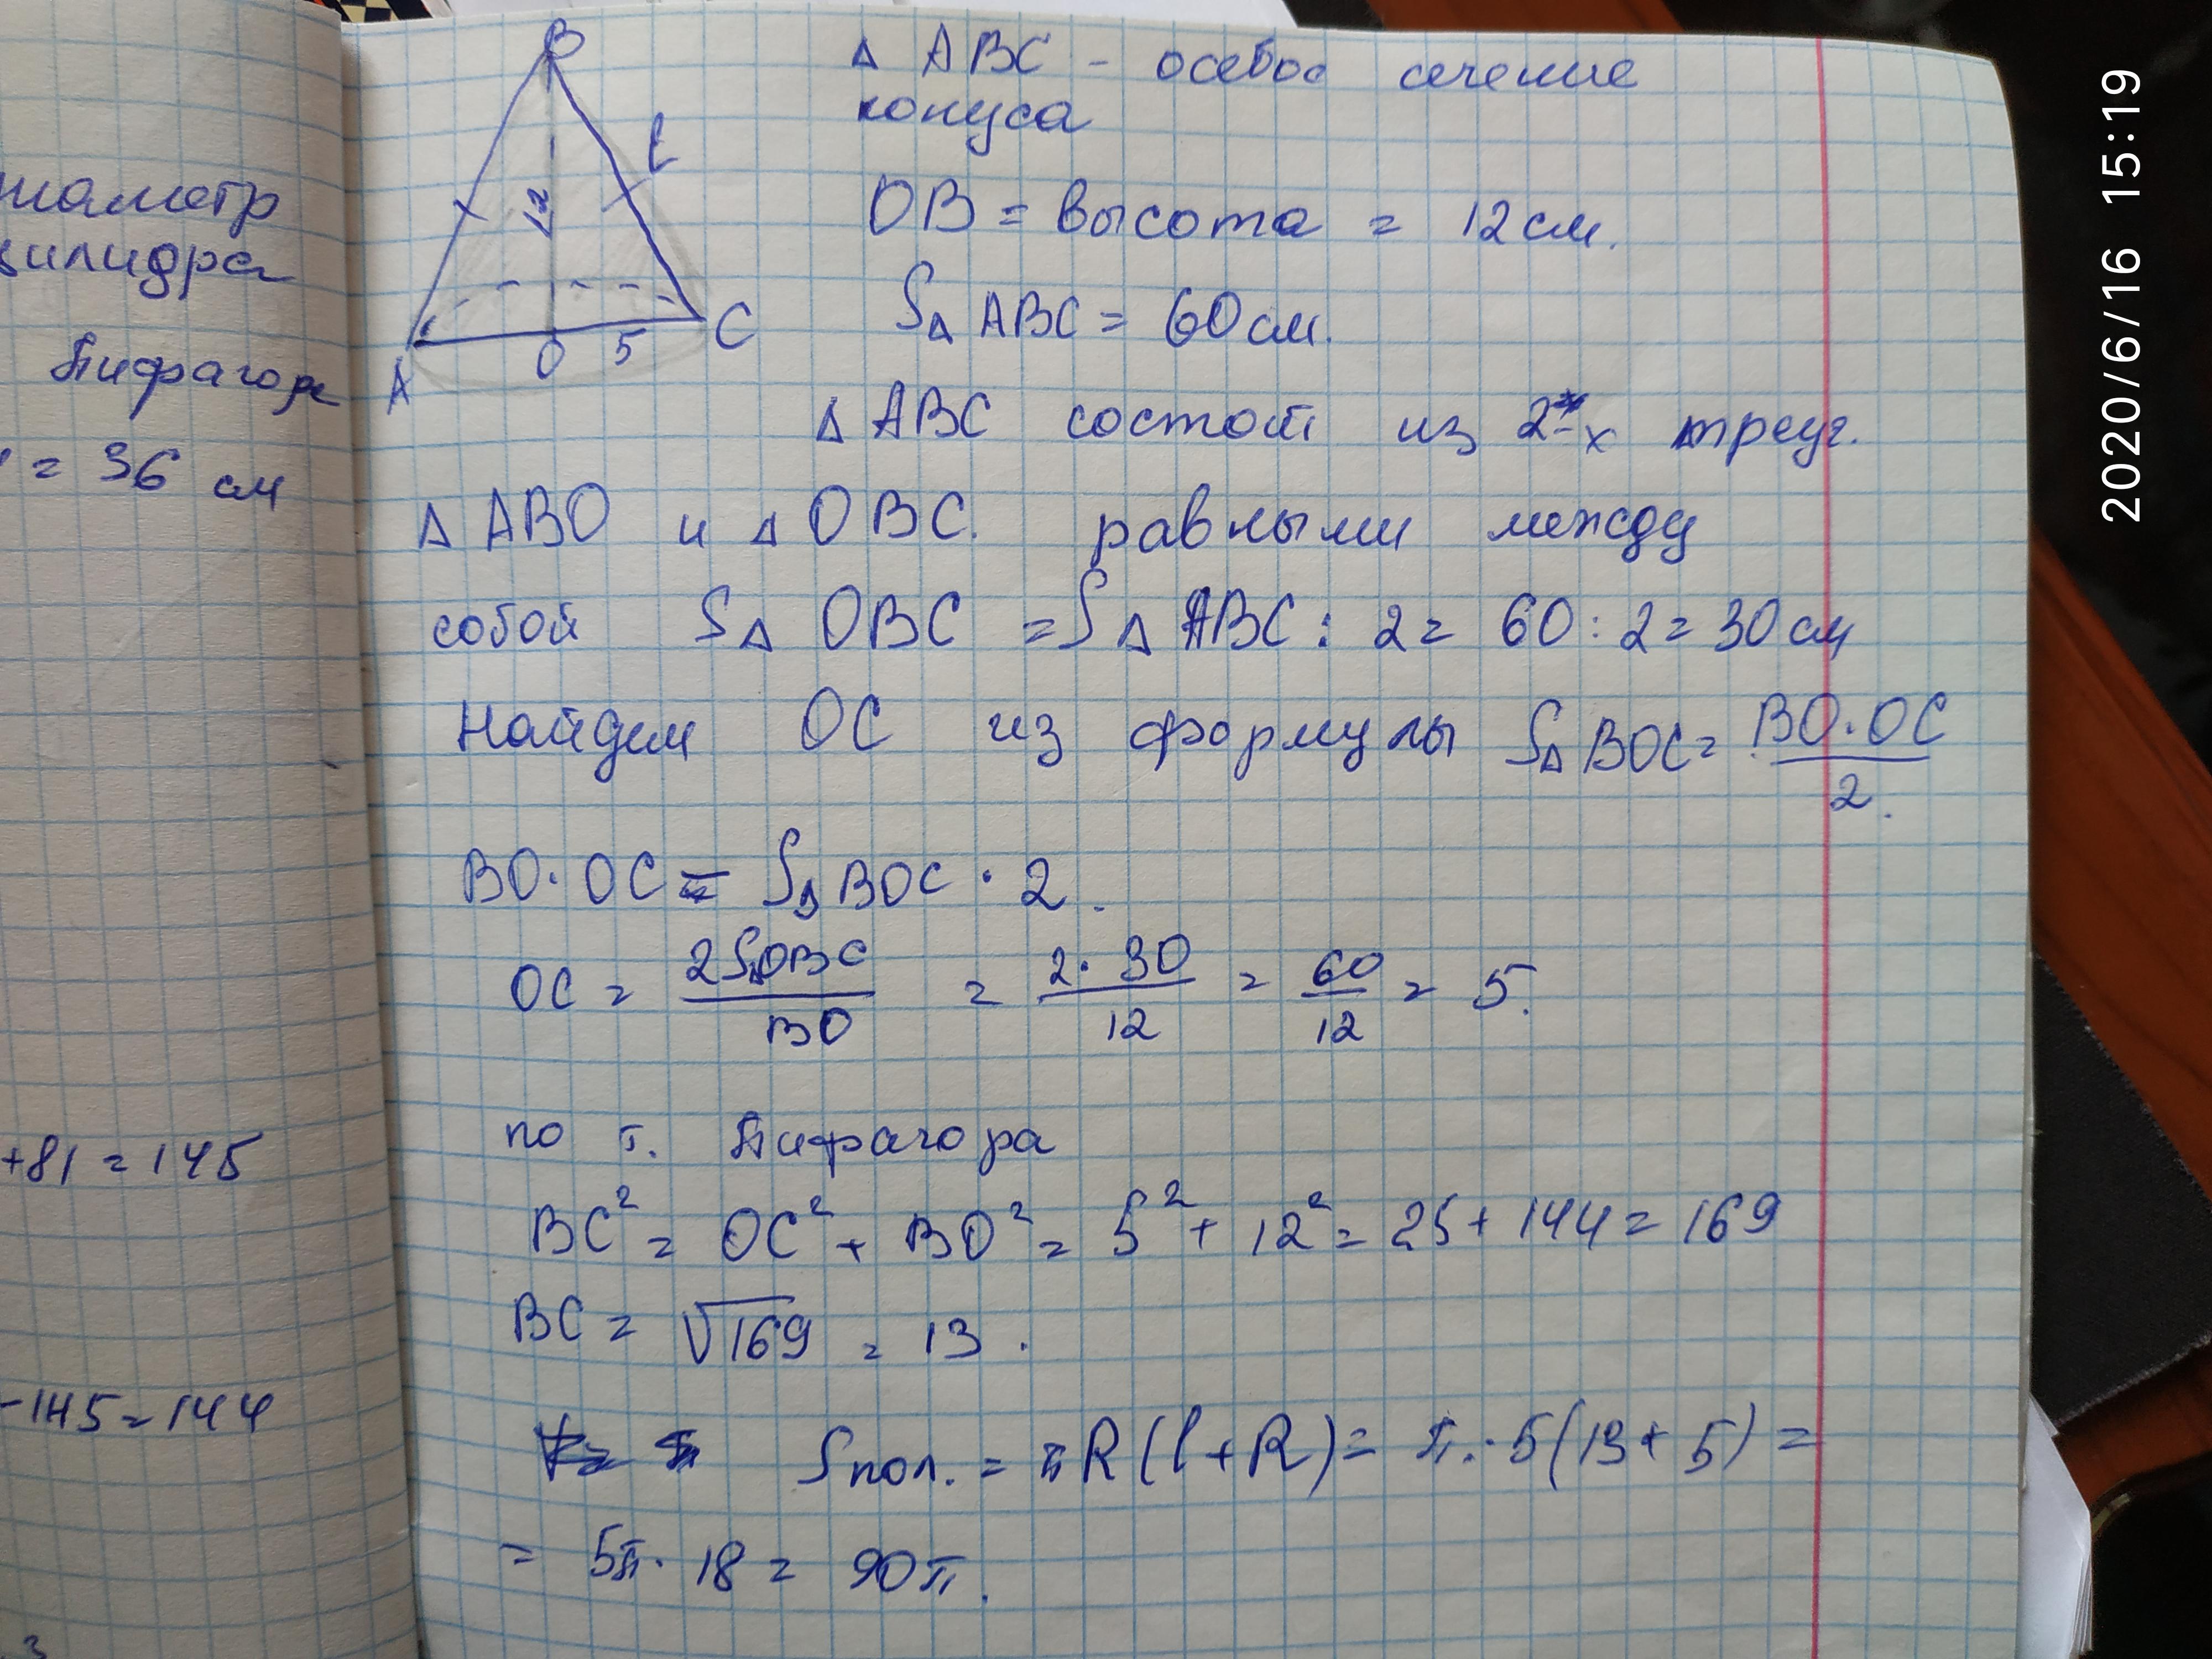 диаметр
цилидра
Пифагора
= 36 см
+81 = 145
-145 = 144
3
B
l
12
A
O
5
C
Δ ABC - осевое сечение
конуса
OB = высота = 12 см.
SΔ ABC = 60 см.
Δ ABC состоит из 2-х треуг.
Δ ABO и Δ OBC. равными между
собой SΔ OBC = SΔ ABC : 2 = 60 : 2 = 30 см
Найдем OC из формулы SΔ BOC = BO·OC / 2.
BO·OC = SΔ BOC · 2.
OC = 2SΔOBC / BO = 2·30 / 12 = 60 / 12 = 5.
по т. Пифагора
BC² = OC² + BO² = 5² + 12² = 25 + 144 = 169
BC = √169 = 13.
Sпол. = πR(l+R) = π·5(13+5) =
= 5π·18 = 90π.
2020/6/16 15:19